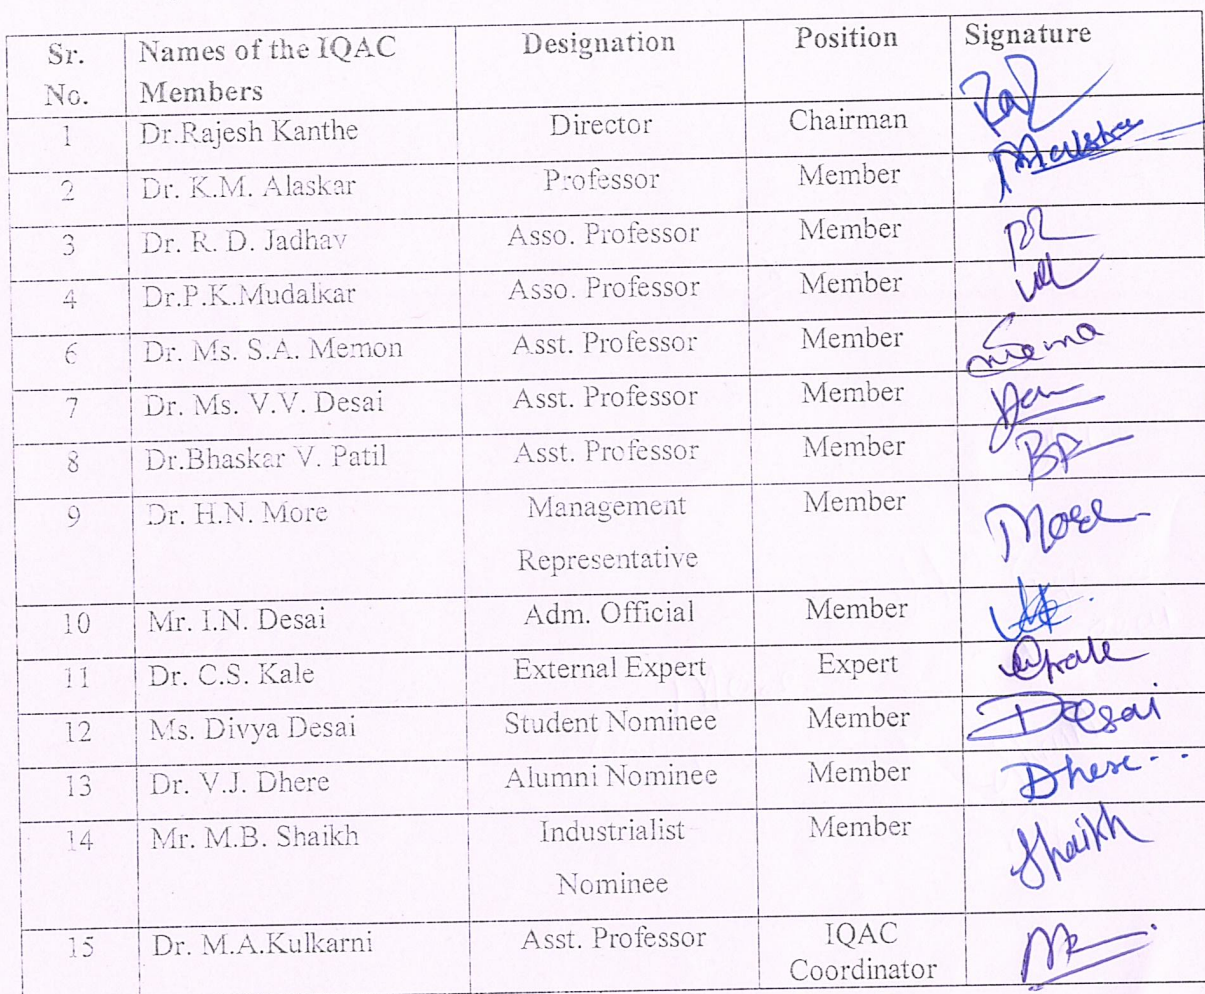 Sr. Names of the IQAC Designation Position Signature
No. Members
1 Dr.Rajesh Kanthe Director Chairman
2 Dr. K.M. Alaskar Professor Member
3 Dr. R. D. Jadhav Asso. Professor Member
4 Dr.P.K.Mudalkar Asso. Professor Member
6 Dr. Ms. S.A. Memon Asst. Professor Member
7 Dr. Ms. V.V. Desai Asst. Professor Member
8 Dr.Bhaskar V. Patil Asst. Professor Member
9 Dr. H.N. More Management Member More
Representative
10 Mr. I.N. Desai Adm. Official Member
11 Dr. C.S. Kale External Expert Expert
12 Ms. Divya Desai Student Nominee Member Desai
13 Dr. V.J. Dhere Alumni Nominee Member Dhere
14 Mr. M.B. Shaikh Industrialist Member Shaikh
Nominee
15 Dr. M.A.Kulkarni Asst. Professor IQAC
Coordinator